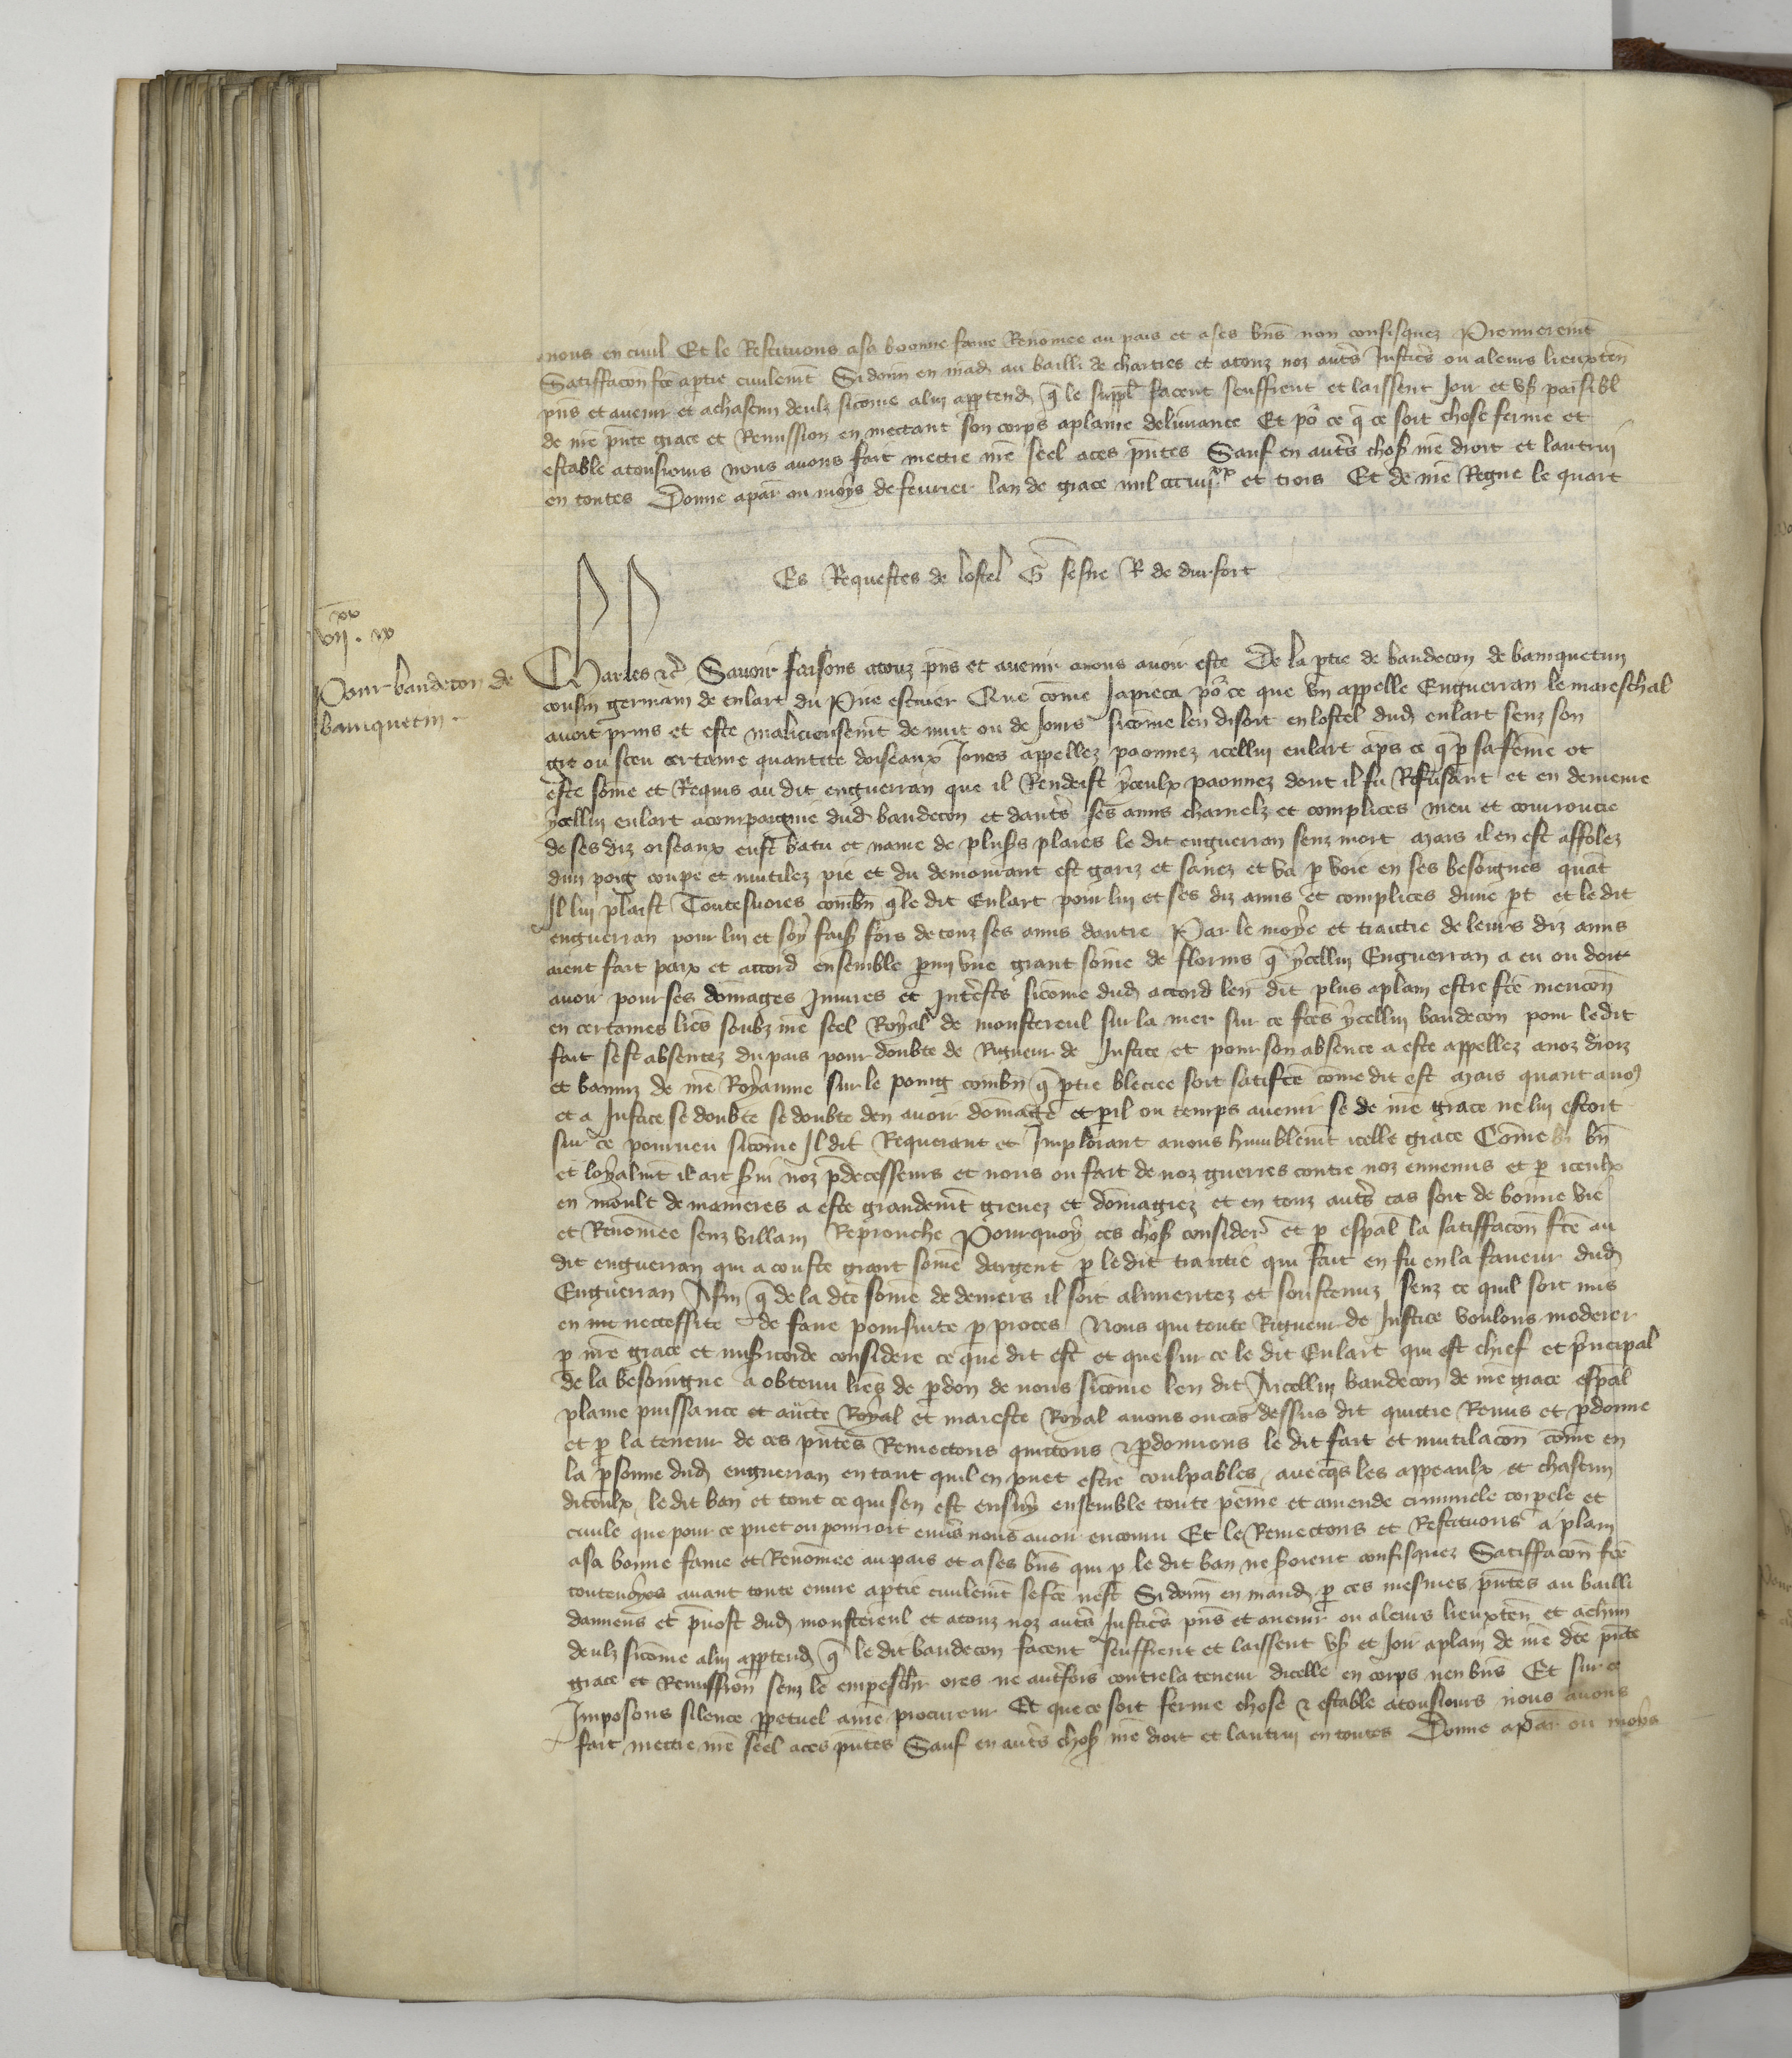 nous en civil Et le Restituons a sa bonne fame Renōmee au pais et a ses bn̄s non confisquez Premierem̄t
Satiffacōn fc̄e a ptie civilem̄t Si donn en mād au bailli de chartres et a touz noz aut̄s Justic̄s ou a leurs lieuxten
pn̄s et avenir et a chascun deulz sicōme a lui apptend q̄ le suppl̄ facent seuffrent et laissent Joir et us̄ paisibl
de nr̄e pn̄te grace et Remission en mettant son corps a plaine delivrance Et po᷑ ce q̄ ce soit chose ferme et
estable a tousiours nous avons fait mettre nr̄e seel a ces pn̄tes Sauf en aut̄s choses nr̄e droit et lautrui
en toutes Donne a par̄ ou moys de fevrier lan de grace mil ccciiii xx et trois Et de nr̄e Regne le quart
Es Requestes de lostel R de dursort
vii xx. x
Pour baudecon de
bauquetin.
Charles &c̄ Savoir faisons a touz pn̄s et avenir a nous avoir este De la ptie de baudecon de bauquetun
cousin germain de enlart du Prie escuier Que cōme Japieca po᷑ ce que un appelle Enguerran le mareschal
avoit prins et oste malicieusem̄t de nuit ou de Jours sicōme len disoit en lostel dud enlart senz son
gre ou sceu certaine quantite doiseaux Jones appellez paonnez icellui enlart ap̄s ce q̄ p sa fēme ot
este sōme et Requis au dit enguerran que il Rendeist yceulx paonnez dont il fu Refusant et en demeure
ycellui enlart acompaigne dud baudecon et daut̄s ses amis charnelz et complices meu et courroucie
de ses diz oiseaux eust batu et navre de plus̄s plaies le dit enguerran senz mort mais il en est affolez
dun poig coupe et mutilez pie et du demourant est gariz et sanez et va p voie en ses besoignes quāt
Il lui plaist Toutesvoies combn̄ q̄ le dit Enlart pour lui et ses diz amis et complices dune pt et le dit
enguerran pour lui et soy fais fors de touz ses amis dautre Par le moyē et traittie de leurs diz amis
aient fait paix et accord ensemble pmi une grant sōme de florins q̄ ycellui Enguerran a eu ou doit
avoir pour ses dōmages Iniures et Int̄ests sicōme dud accord len dit plus a plain estre fc̄e mencōn
en certaines lr̄es soubz nr̄e seel Royal de monstereul sur la mer sur ce fc̄es ycellui baudecon pour le dit
fait sest absentez du pais pour doubte de Rigueur de Justice et pour son absence a este appellez a noz droiz
et banniz de nr̄e Royaume sur le poing combn̄ q̄ ptie bleciee soit satiffc̄e cōme dit est Mais quant a no9
et a Justice se doubte se doubte den avoir dōmage et pil ou temps avenir se de nr̄e grace ne lui estoit
sur ce pourveu sicōme Il dit Requerant et Implorant a nous humblem̄t icelle grace Cōme bn̄
et loyalmt il ait s̄vi noz p̄decesseurs et nous ou fait de noz guerres contre noz ennemis et p iceulx
en moult de manieres a este grandem̄t grevez et dōmagiez et en touz aut̄s cas soit de bonne vie
et Renōmee senz villain Reprouche Pourquoy ces choses consider̄ et p esp̄al la satiffacōn fc̄e au
dit enguerran qui a couste grant sōme dargent p le dit traittie qui fait en fu en la faveur dud
Enguerran Afin q̄ de la dc̄e sōme de deniers il soit alimentez et soustenuz senz ce quil soit mis
en nr̄e neccessite de faire poursuite p proces Nous qui toute Rigueur de Justice voulons moderer
p nr̄e grace et mis̄icorde considere ce que dit est et que sur ce le dit Enlart qui est chief et p̄ncipal
de la besoingne a obtenu lr̄es de pdon de nous sicōme len dit Aicellui baudecon de nr̄e grace esp̄al
plaine puissance et auc̄te Royal et maieste Royal avons ou cas dessus dit quittie Remis et pdonne
et p la teneur de ces pn̄tes Remettons quittons & pdonnons le dit fait et mutilacōn cōme en
la psonne dud enguerran en tant quil en puet estre coulpables avecq̄s les appeaulx et chascun
diceulx le dit ban et tout ce qui sen est ensuy ensemble toute peine et amende criminele corpele et
civile que pour ce puet ou pourroit env̄s nous avoir encouru Et le Remettons et Restituons a plain
a sa bonne fame et Renōmee au pais et a ses bn̄s qui p le dit ban ne s̄oient confisquez Satiffacōn fc̄e
toutevoyes avant toute euvre a ptie civilem̄t se fc̄e nest Si donn̄ en mand p ces mesmes pn̄tes au bailli
damiens et p̄vost dud monstereul et a touz noz aut̄s Justic̄s pn̄s et avenir ou a leurs lieuxten et a chūn
deulz sicōme a lui apptend q̄ le dit baudecon facent seuffrent et laissent us̄ et Joir a plain de nr̄e dc̄e pn̄te
grace et Remission senz le empesch̄r ores ne aut̄fois contre la teneur dicelle en corps nen bn̄s Et sur ce
Imposons silence ppetuel a nr̄e procureur Et que ce soit ferme chose & estable a tousiours nous avons
fait mettre nr̄e seel a ces pn̄tes Sauf en aut̄s choses nr̄e droit et lautrui en toutes Donne a par̄ ou moys